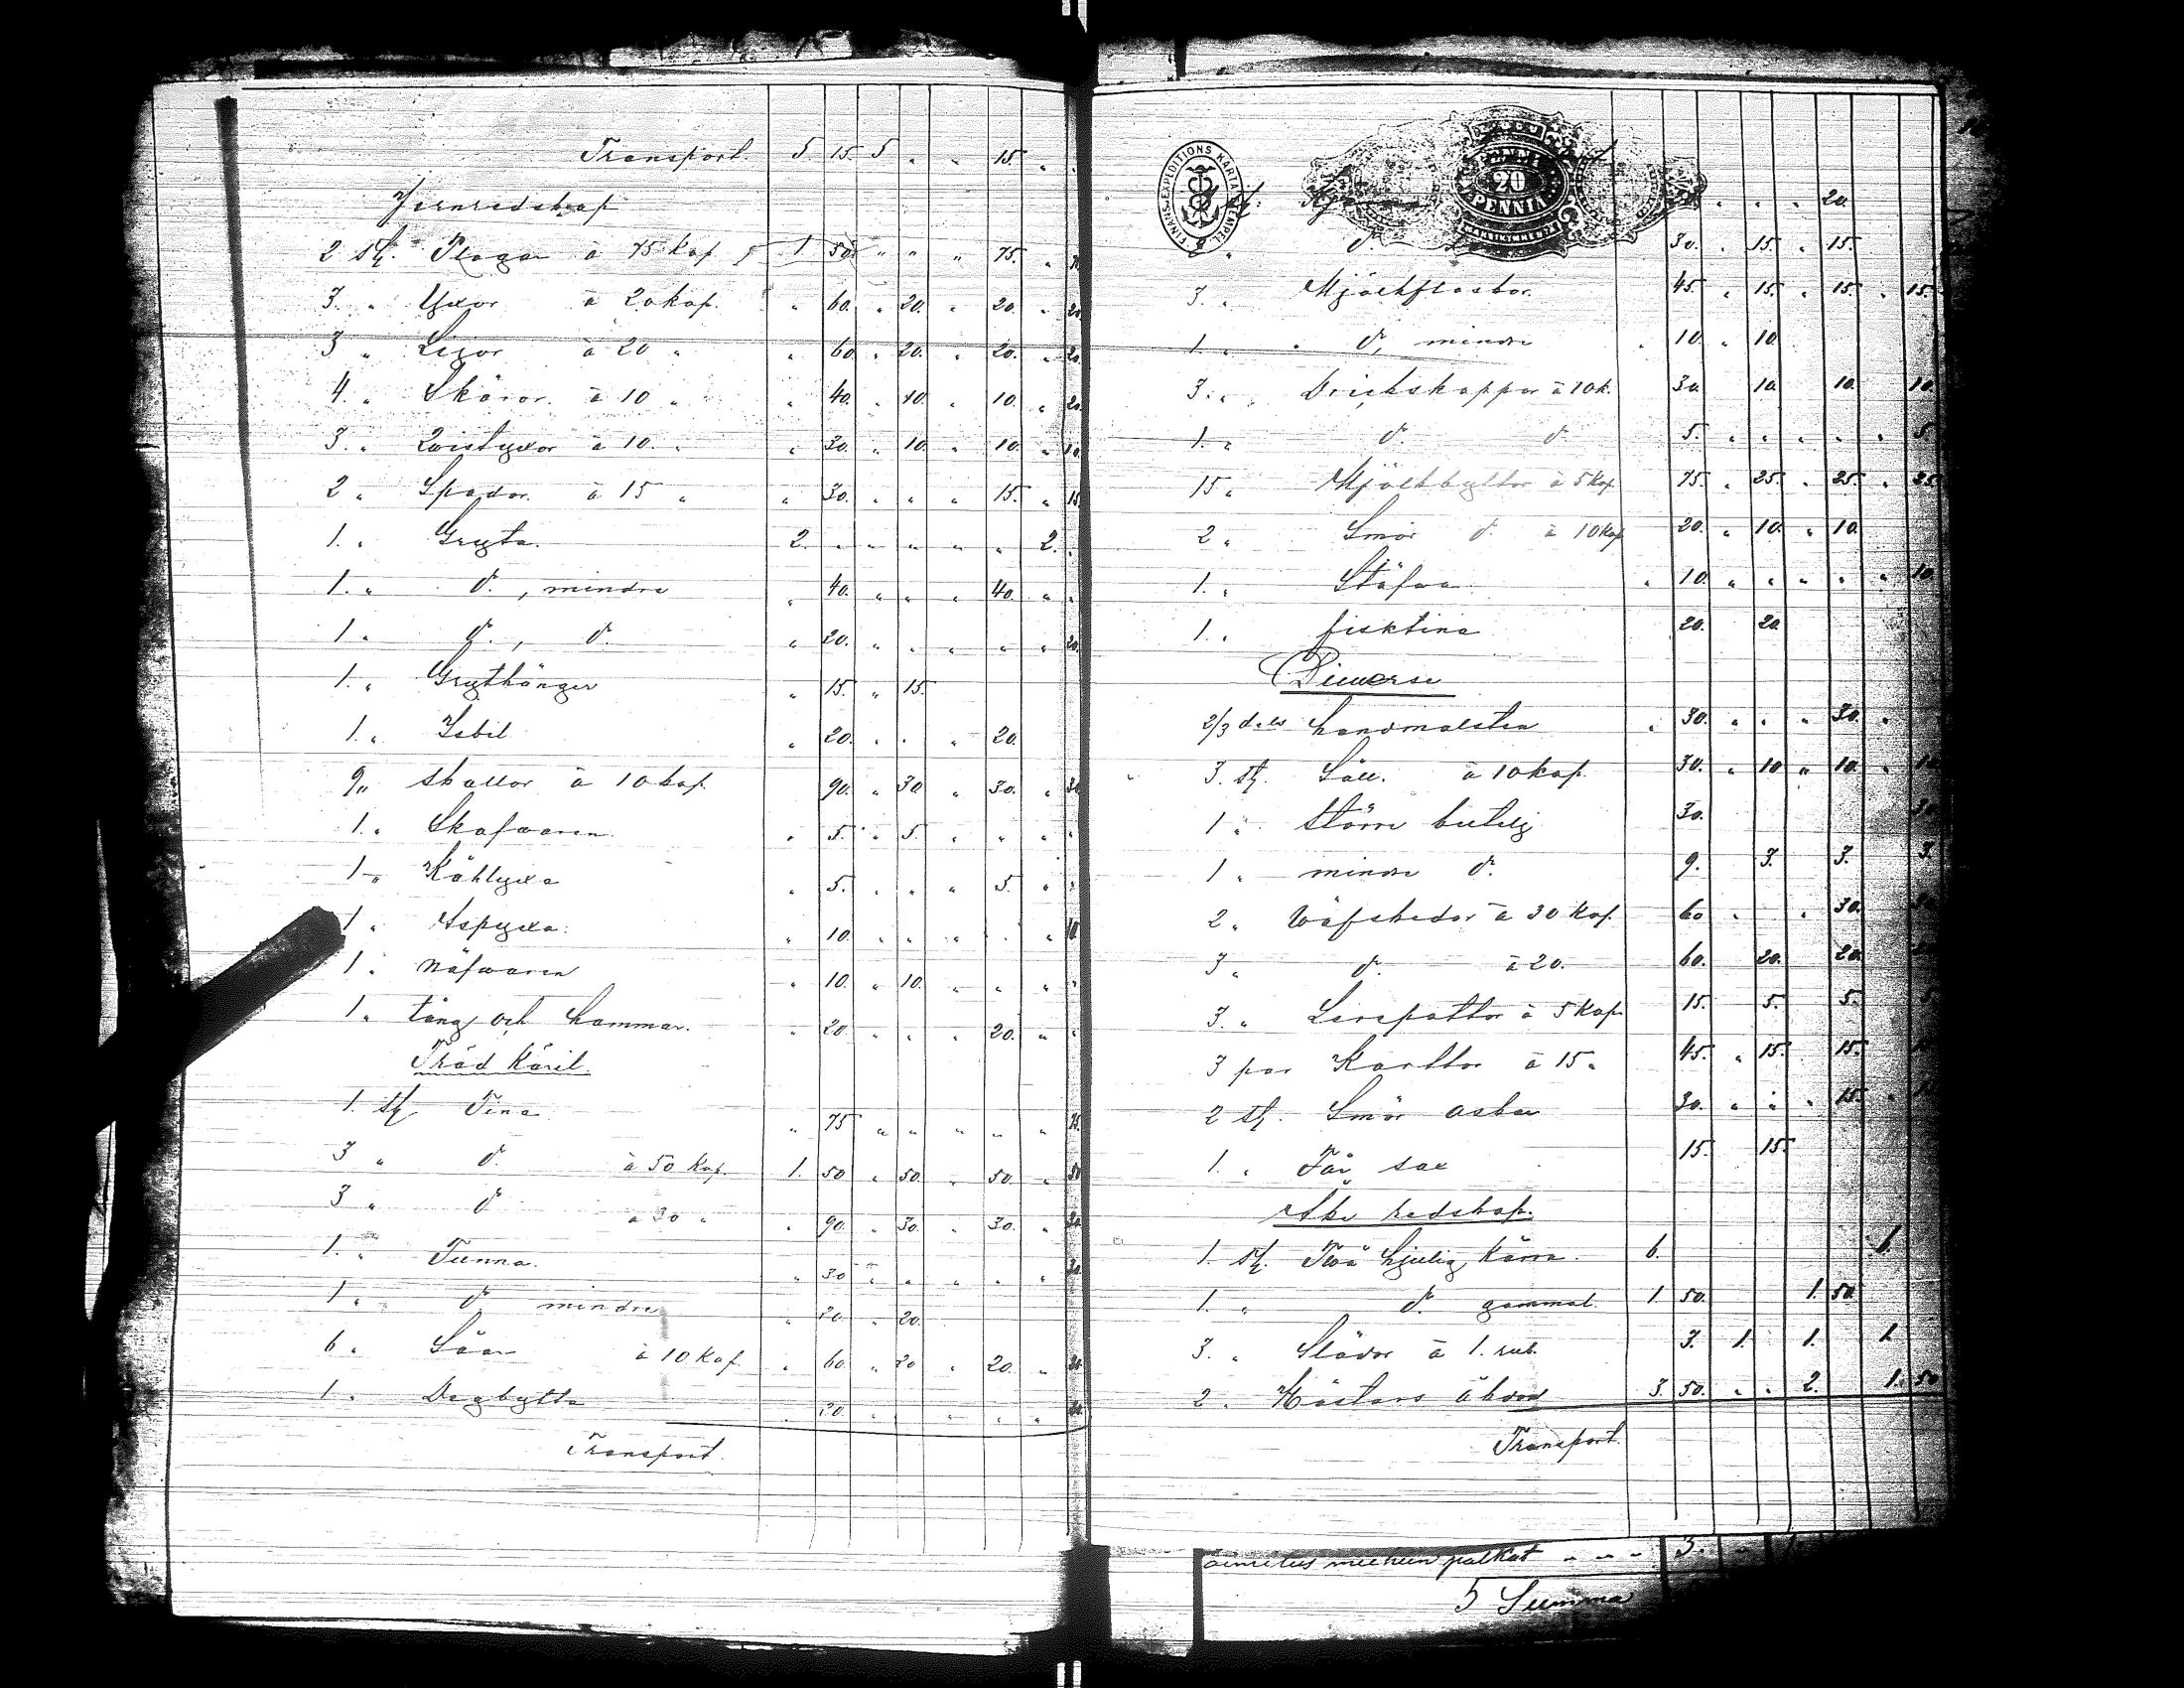 Transport. 5. 15. 5 " " 15. " "
Jernredskap
2 st. Plogar à 75 kop. 1 50 " " " 75. "
3. " Yxor à 20 kop. " 60. " 20. " 20. " 20
3 " Lizor à 20 " " 60. " 20. " 20. " 20.
4 " Skäror à 10 " " 40. " 10. " 10. " 20.
3. " Qvistyxor à 10. " " 30. " 10. " 10. " 10.
2 " Spador à 15 " " 30. " " " 15. " 15.
1. " Gryta. 2. " " " " " 2. "
1. " d:o, mindre " 40. " " " 40. " "
1 " d:o, d:o " 20. " " " " " 20.
1. " Grythänger " 15. " 15.
1. " Isbil " 20. " " " 20.
9 " skallor à 10 kop. 90. " 30 " 30. " 30
1. " Skafvaren " 5. " 5. " " " "
1 " Kåhlyxa " 5. " " " 5. " "
1 " Aspyxa. " 10. " " " " " 10
1 " näfvaren " 10. " 10. " " " "
1 " tång och hammar. " 20. " " " 20. " "
Träd Käril.
1. st Tina " 75 " " " " " 75.
3 " d:o à 50 Kop. 1. 50 " 50. " 50. " 50
3 " d:o à 30 " " 90. " 30. " 30. " 30
1. " Tunna. " 30 " " " " " 30.
1 " d:o mindre " 20. " 20.
6 " Såar à 10 Kop. " 60. " 20 " 20. " 20.
1 " Degbytta " 20. " " " " "
Transport.
FINSK EXPEDITIONS KARTA STEMPEL
20
PENNIÄ
20.
" d:o 30. " 15. " 15.
3. " Mjölkflaskor. 45. " 15. " 15. " 15.
1. " d:o, mindre " 10. " 10.
3. " Drickskappor à 10 k. 30. 10. 10. 10.
1. " d:o d:o 5. " " " " " 5.
15 " Mjölkbyttor à 5 Kop. 75. " 25. " 25. " 25.
2 " Smör d:o à 10 Kop 20. " 10. " 10.
1. " Stäfva " 10. " " " " " 10.
1. " fisktina 20. 20.
Diverse
2/3 dels handmalsten " 30. " " " 30. "
3. st. Såll. à 10 kop. 30. " 10 " 10. "
1 " större butelj 30.
1 " mindre d:o 9. 3. 3. 3.
2 " Wäfskedar à 30 Kop. 60 " " 30.
3 " d:o à 20. 60. 20. 20.
3. " Lerpottor à 5 Kop. 15. 5. 5. 5
3 par Karttor à 15 " 45. " 15. 15.
2 st. Smör askar 30. " " " 15. "
1. " Får sax 15. 15.
Åke redskap.
1. st. Två hjulig kärra. 6. 6.
1. " d:o gammal. 1. 50. 1. 50.
3. " Slädor à 1. rub. 3. 1. 1. 1
2. " Hästars åkdon 3. 50. " " 2. 1. 50
Transport.
palkat " " " 3. "
5 Summa